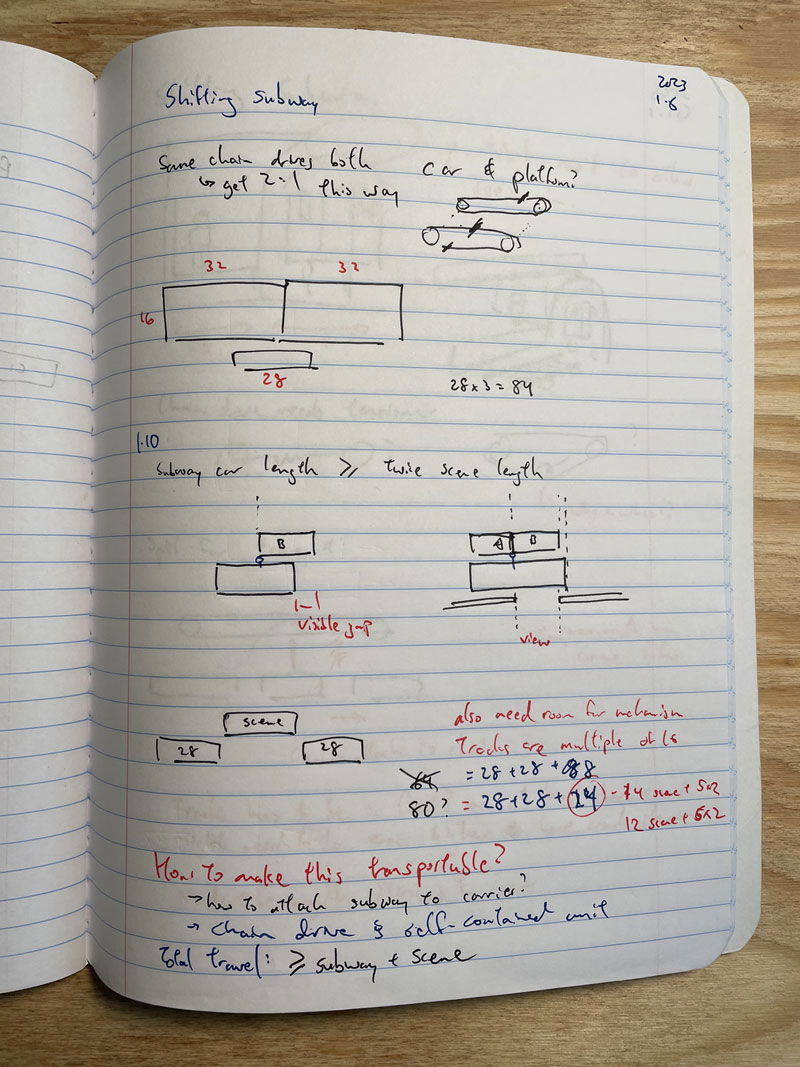 2023
1.6
Shifting subway
Same chain drives both
↳ get 2:1 this way
Car & platform?
32 32
16
28
28 x 3 = 84
1.10
Subway car length ≥ twice scene length
B
A B
visible gap
view
scene
28 28
also need room for mechanism
Tracks are multiple of 16
64 = 28 + 28 + 8
80? = 28 + 28 + 24 - 14 scene + 5x2
12 scene + 6x2
How to make this transportable?
→ how to attach subway to carrier?
→ chain drive & self-contained unit
Total travel: ≥ subway + scene